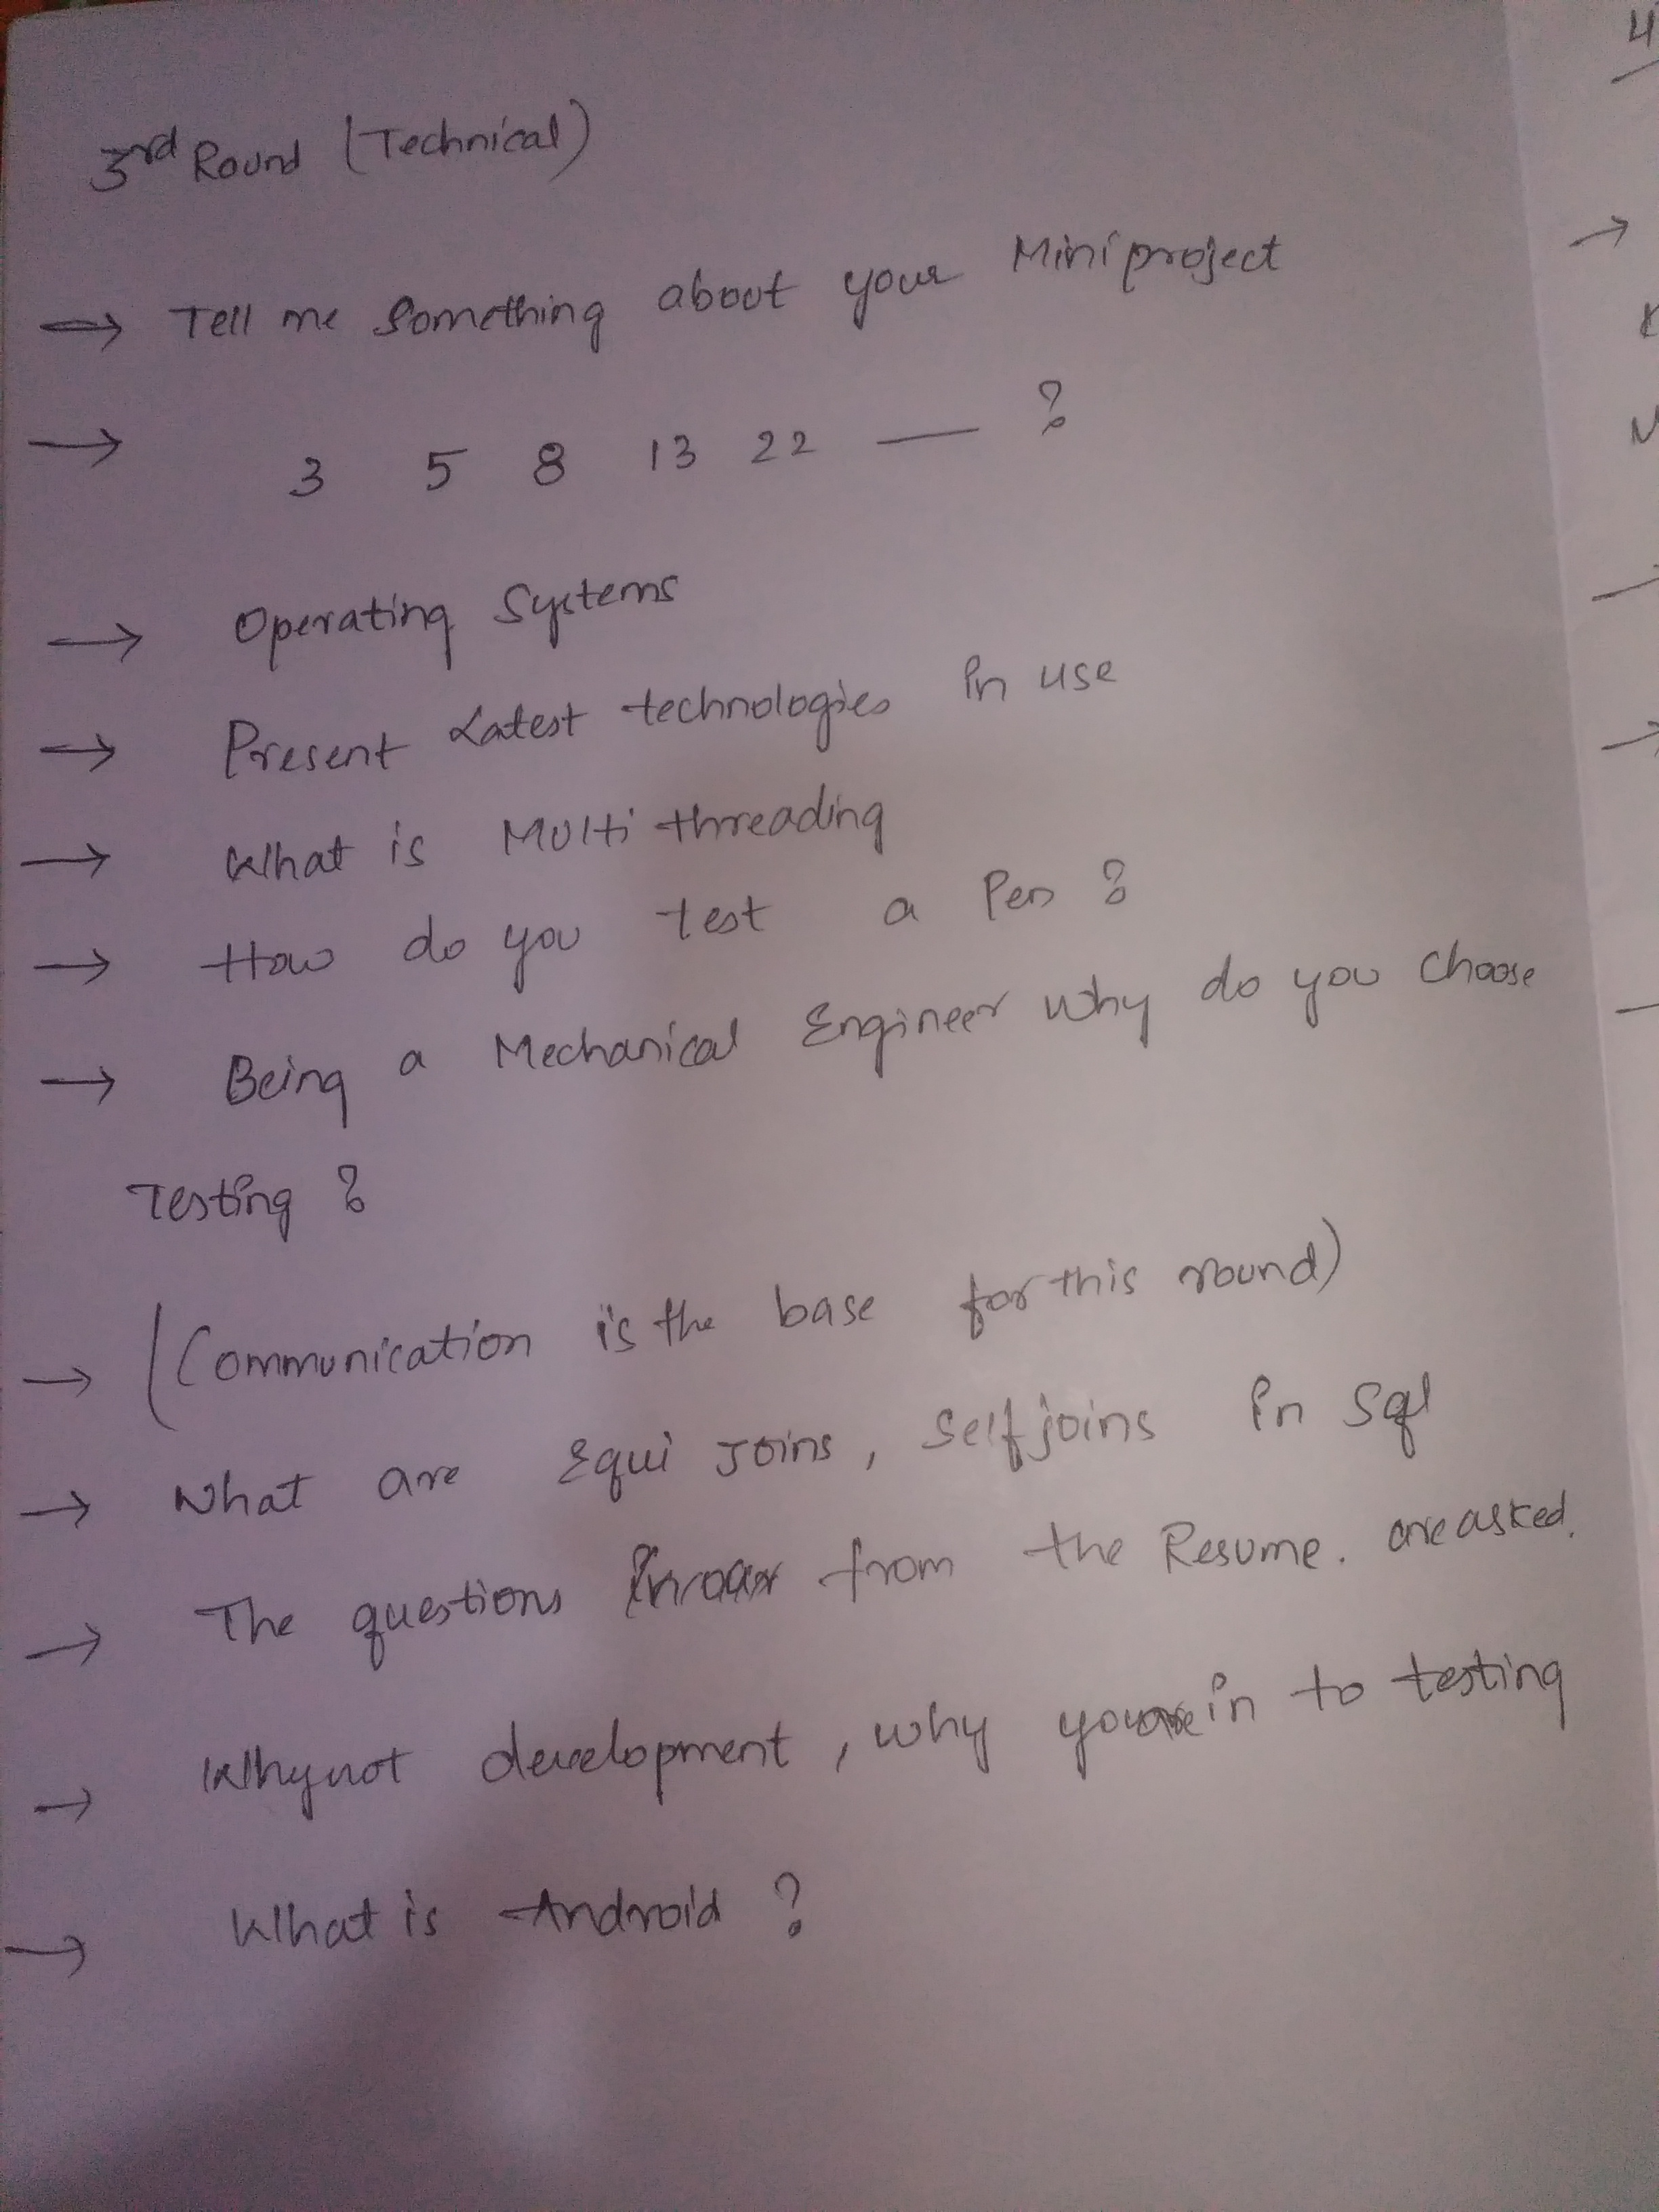 3rd Round (Technical)
→ Tell me Something about your Mini project
→ 3 5 8 13 22 — ?
→ Operating Systems
→ Present Latest technologies in use
→ What is Multi threading
→ How do you test a Pen ?
→ Being a Mechanical Engineer why do you choose
Testing ?
→ (Communication is the base for this round)
→ What are Equi Joins, Self joins in Sql
→ The questions from the Resume. are asked.
→ Why not development, why you are in to testing
→ What is Android ?